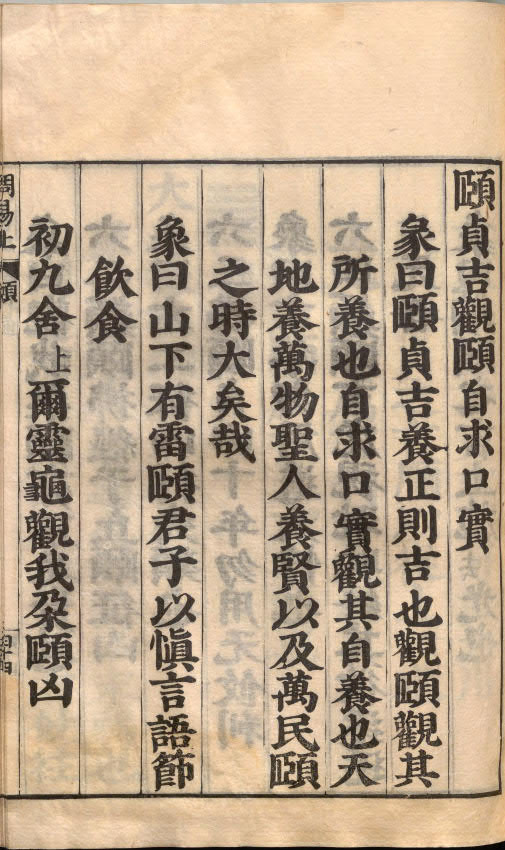 頤貞吉觀頤自求口實
彖曰頤貞吉養正則吉也觀頤觀其
所養也自求口實觀其自養也天
地養萬物聖人養賢以及萬民頤
之時大矣哉
象曰山下有雷頤君子以愼言語節
飮食
初九舍上爾靈龜觀我朶頤凶
周易上 頤
四十四